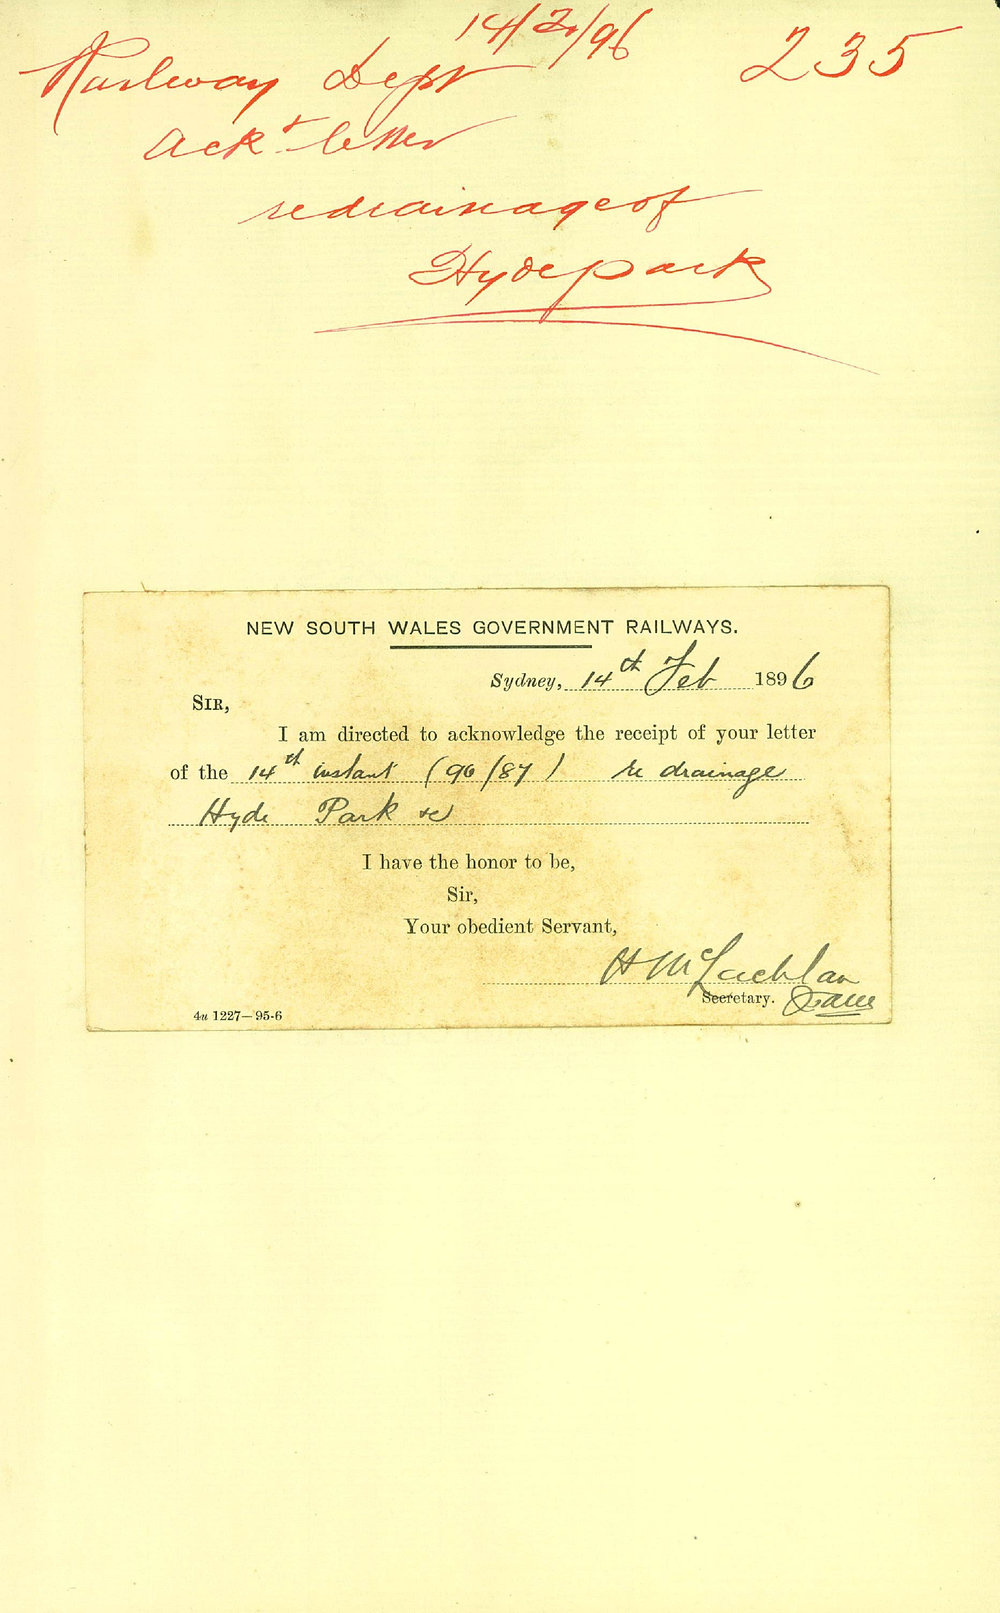 14/2/96
235
Railway Dept
ackt letter
re drainage of
Hyde park
NEW SOUTH WALES GOVERNMENT RAILWAYS.
Sydney, 14th Feb 1896
SIR,
I am directed to acknowledge the receipt of your letter
of the 14th instant (96/87) re drainage
Hyde Park &c
I have the honor to be,
Sir,
Your obedient Servant,
H McLachlan
Secretary.
4u 1227—95-6